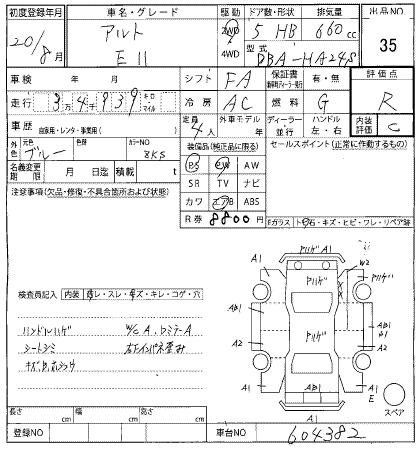 初度登録年月 車名・グレード 駆動 ドア数・形状 排気量 出品NO
20/8月 アルト E II 2WD 4WD 5 HB 660cc 35
型式 DBA-HA24S
車検 年 月 シフト FA 保証書 有・無 評価点
走行 3万4千939 キロ・マイル 冷房 AC 燃料 G R
車歴 自家用・レンタ・事業用( ) 定員 4人 外車モデル 年 ディーラー・並行 ハンドル 左・右 内装評価 C
外色 元色 ブルー 色替 カラーNO 8KS 装備品(純正品に限る) セールスポイント(正常に作動するもの)
名義変更期限 月 日迄 積載 t PS PW AW
注意事項(欠品・修復・不具合箇所および状態) SR TV ナビ
カワ エアB ABS
R券 8800円 Fガラス トビ石・キズ・ヒビ・ワレ・リペア跡
検査員記入 内装 汚レ・スレ・キズ・キレ・コゲ・穴
ハンドルハゲ W/C A、Dミラー A
シートシミ 右下インパネ歪み
A1 アルハゲ A1 W2 アルハゲ
AB1 アルハゲ AB1 B1
A2 A2
アルハゲ
A1 AB1 A1 E
A1 スペア
長さ cm 幅 cm 高さ cm
登録NO 車台NO 604382